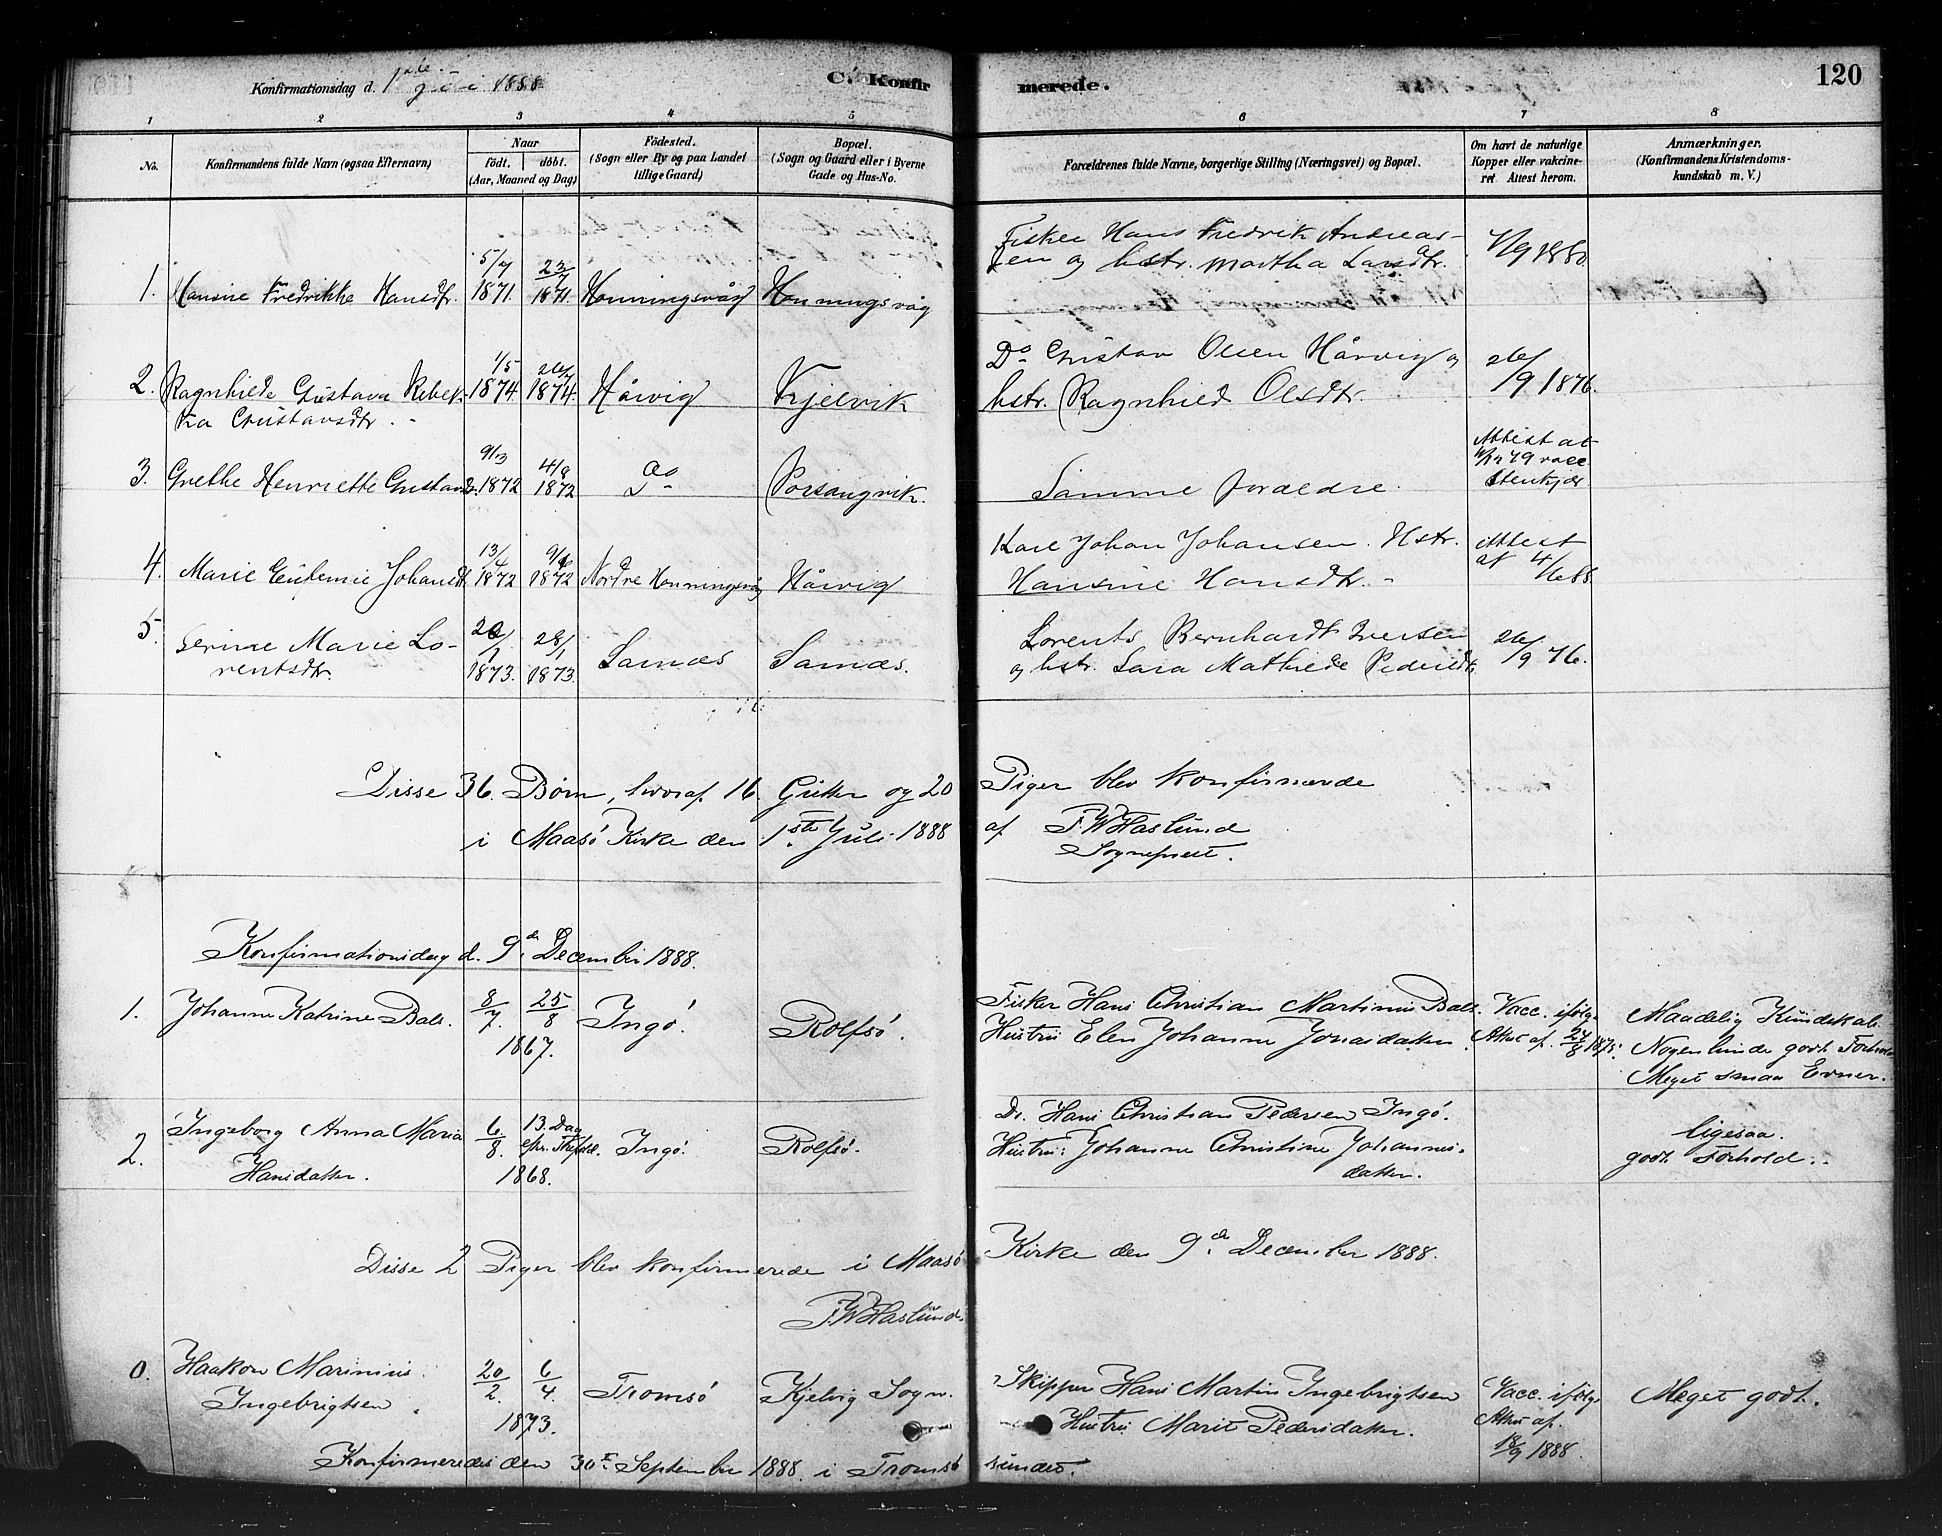 Konfirmationsdag d. 1ste Juli 1888
C. Konfirmerede.
120
1 2 3 4 5 6 7 8
No.
Konfirmandens fulde Navn (ogsaa Efternavn)
Naar
födt. döbt.
(Aar, Maaned og Dag)
Födested.
(Sogn eller By og paa Landet
tillige Gaard)
Bopæl.
(Sogn og Gaard eller i Byerne
Gade og Hus-No.
Forældrenes fulde Navne, borgerlige Stilling (Næringsvei) og Bopæl.
Om havt de naturlige
Kopper eller vakcine-
ret. Attest herom.
Anmærkninger.
(Konfirmandens Kristendoms-
kundskab m. V.)
1. Hansine Fredrikke Hansdtr. 5/7 1871. 23/7 1871. Honningsvåg Honningsvåg
Fisker Hans Fredrik Andrea-
sen og hstr. Martha Larsdtr.
/9 1880
2. Ragnhilde Gustava Rebek-
ka Gustavsdtr. 1/5 1874 26/7 1874. Hårvig Kjelvik
Do Gustav Olsen Hårvig og
hstr. Ragnhild Olsdtr.
26/9 1876.
3. Grethe Henriette Gustavsd. 1872 4/8 1872 Do Porsangvik.
Samme forældre.
Attest af
79 vacc.
Stenkjær
4. Marie Eufemie Johansdt. 13/4 1872 9/6 1872 Nordre Honningsvåg Hårvig
Karl Johan Johansen. Hstr.
Hansine Hansdtr.
Attest
af 4/6 88
5. Serine Marie Lo-
rentsdtr. 20/1 1873. 28/1 1873. Sarnes Sarnes.
Lorents Bernhardt Iversen
og hstr. Sara Mathilde Pedersdtr.
26/9 76.
Disse 36. Børn, hvoraf 16. Gutter og 20 Piger blev konfirmerede
i Maasö Kirke den 1ste Juli 1888 af F. W Haslund
Sognepræst.
Konfirmationsdag d. 9de December 1888.
1. Johanne Katrine Bals. 8/7. 25/8 1867. Ingö. Rolfsö.
Fisker Hans Christian Martinius Bals.
Hustru Elen Johanne Jonasdatter.
Vacc. ifölge
Attest af. 24/8 1875.
Maadelig Kundskab.
Nogenlunde godt Forhold
Meget smaa Evner.
2. Ingeborg Anna Maria
Hansdatter. 6/8. 13. Dag
eftr. Trefold. 1868. Ingö. Rolfsö.
Do. Hans Christian Pedersen Ingö.
Hustru: Johanne Christine Johannes-
datter.
ligesaa.
godt Forhold.
Disse 2 Piger blev konfirmerede i Maasö Kirke den 9de December 1888.
F. W Haslund.
0. Haakon Marinius
Ingebrigtsen 20/2 6/4 1873. Tromsö Kjelvig Sogn.
Skipper Hans Martin Ingebrigtsen
Hustru Marit Pedersdatter.
Vacc. ifölge
Attest af.
18/9 1888.
Meget godt.
Konfirmeredes den 30te September 1888. i Tromsösundet.